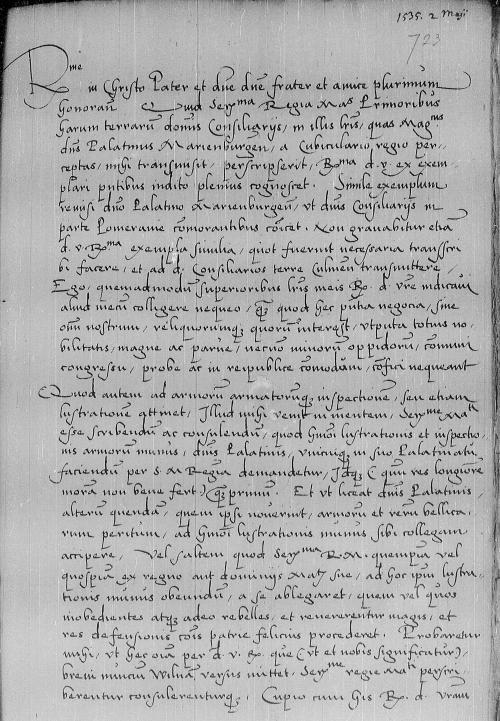 1535. 2 Maij
723
R me in Christo Pater et dne dne frater et amice plurimum
honoran Quid Ser ma Regia Mas Primoribus
harum terrarum donis Consiliarijs, in illis lris, quas Mag us
dns Palatinus Marienburgen, a Cubiculario regio per-
ceptas, mihi transmisit, perscripserit, R ma d. v. ex exem-
plari pntibus indito plenius cognoscet. Simile exemplum
remisi dno Palatino Marienburgen, vt dnis Consiliarijs in
parte Pomeranie comorantibus coicet. Non gravabitur etia
d. v. R ma exempla similia, quot fuerint necessaria transscri
bi facere, et ad d. Consiliarios terre Culmen transmittere,
Ego, quemadmodu superioribus lris meis R. d. vre indicavi
aliud mecu colligere nequeo, quod hec pntia negocia, sine
oim nostrum, reliquorumq quorum interest, vtputa totius no-
bilitatis, magne ac parve, necno minoru oppidoru, comuni
congressu, probe ac in reipublice comodum, cofici nequeant
Quod autem ad armoru armatoruq inspectione, seu etiam
lustratione attinet, Illud mihi venit in mentem, Ser me Mati
esse scribendu ac consulendu, quod hmoi lustrationis et inspectio-
nis armoru munus, dnis Palatinis, vnicuiq in suo Palatinatu
faciendum per S. M Regia demandetur, Idq, cu res longiore
mora non bene fert, primu. Et vt liceat dnis Palatinis,
alteru quenda, quem ipsi noverint, armoru et reru bellica-
rum peritum, ad hmoi lustrationis munus sibi collegam
accipere, Vel saltem quod Ser ma R. M. quempia vel
quospia ex regno aut dominijs Mats sue, ad hoc ipm lustra-
tionis munus obeundu, a se ablegaret, quem vel quos
inobedientes atq adeo rebelles, et revererentur magis, et
res defensionis cois patrie felicius procederet. Probaretur
mihi, vt hec oia per d. v. R. que (vt et nobis significatur),
brevi nunciu Wilna versus mittet, Ser me regie Mati perscri-
berentur consulerenturq. Cupio cum his R. d. vram